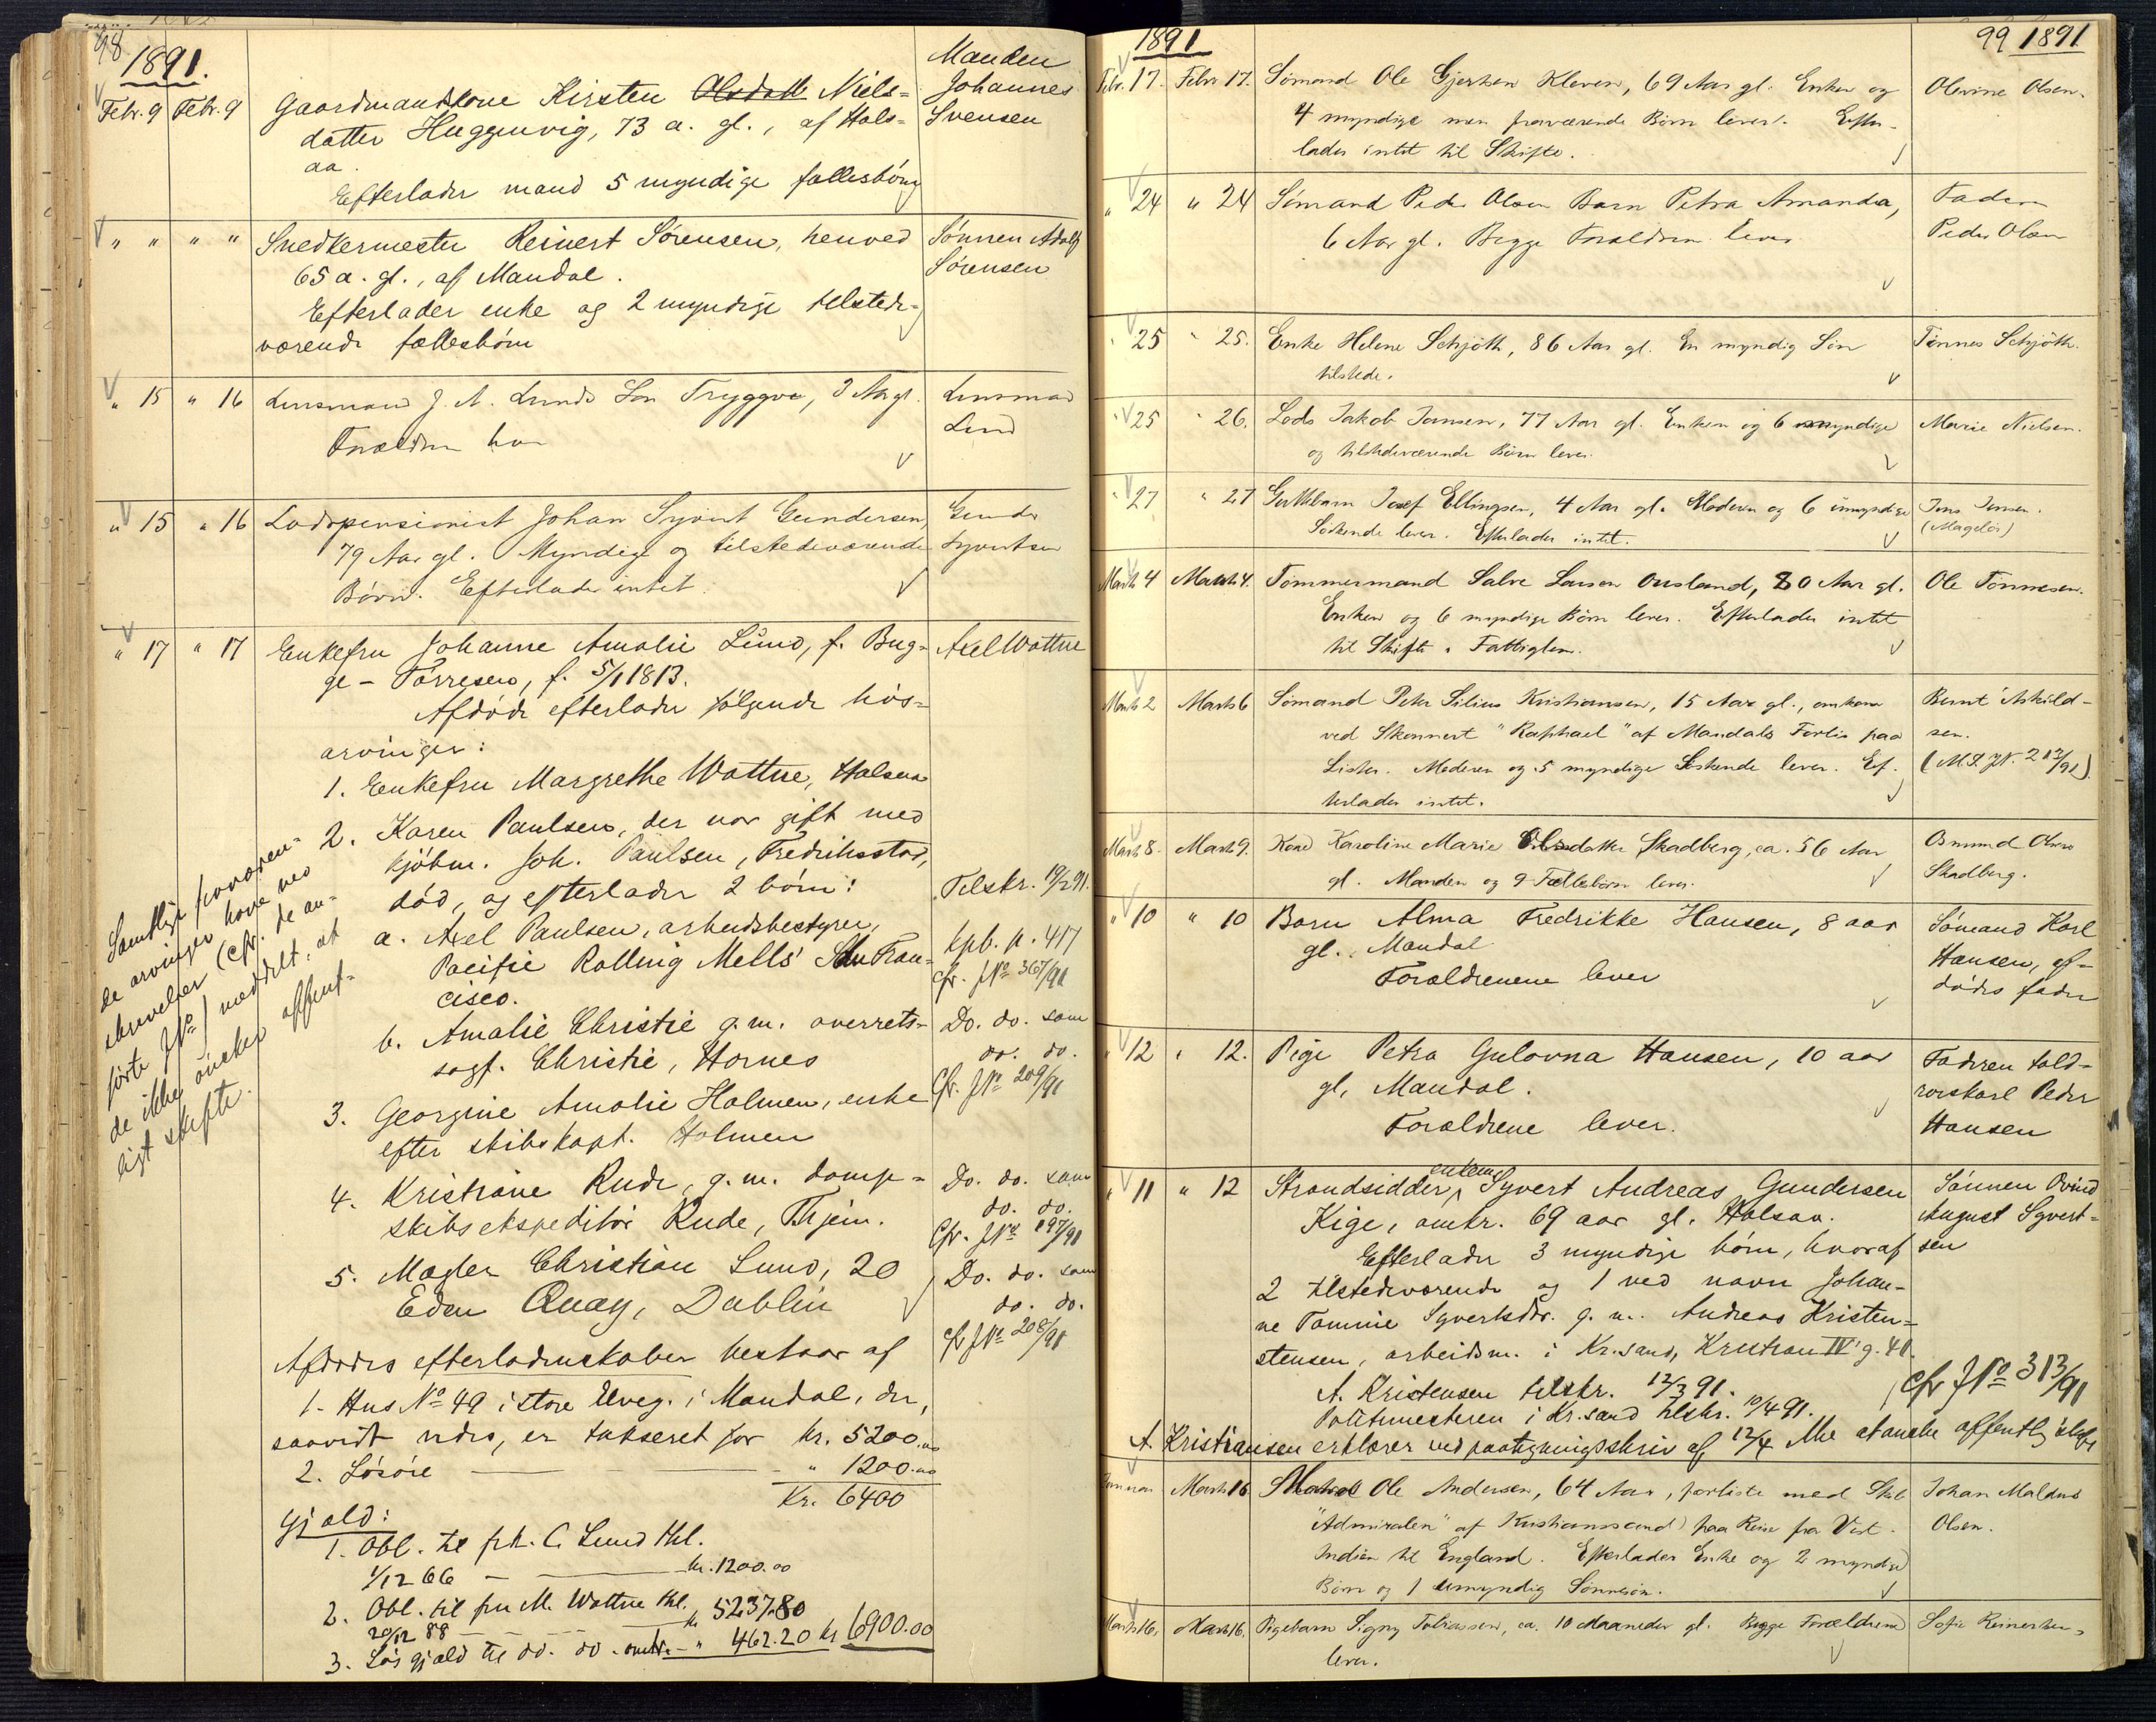 98
1891.
Manden
Febr. 9 Febr. 9 Gaardmandskone Kirsten Olsdatt Niels= Johannes
datter Huggenvig, 73 a. gl., af Hals= Svensen
aa.
Efterlader mand 5 myndige fællesbørn
" " " " Snedkermester Reinert Sørensen, henved Sønnen Adolf
65 a. gl., af Mandal. Sørensen
Efterlader enke og 2 myndige tilstede=
værende fællesbørn
" 15 " 16 Lensmand J. A. Lunds Søn Tryggve, 3 Aar gl. Lensmand
Forældrene her Lund
" 15 " 16 Lodspensionist Johan Syvert Gundersen, Gunder
79 Aar gl. Myndige og tilstedeværende Syvertsen
Børn. Efterlader intet.
" 17 " 17 Enkefru Johanne Amalie Lund, f. Bug= Axel Wattne
ge - Tørresen, f. 5/1 1813.
Afdøde efterlader følgende livs=
arvinger:
1. Enkefru Margrethe Wattne, Halsaa
2. Karen Paulsen, der var gift med
kjøbm. Joh. Paulsen, Fredriksstad,
død, og efterlader 2 børn: Tilskr. 19/2 91.
a. Axel Paulsen, arbeidsbestyrer, kpb. p. 417
Pacific Rolling Mells' San Fran= cfr. J№ 367/91
cisco.
b. Amalie Christie g.m. overrets= Do. do. som
sagf. Christie, Hornes do. do.
Cfr. J№ 209/91
3. Georgine Amalie Holmen, enke
efter skibskapt. Holmen
4. Kristiane Rude, g.m. damp= Do. do. som
skibsekspeditør Rude, Thjem. do. do.
Cfr. J№ 197/91
5. Mægler Christian Lund, 20 Do. do. som
Eden Quay, Dublin do. do.
cfr J№ 208/91
Samtlige fraværen=
de arvinger have ved
skrivelser (cfr. de an=
førte J№) meddelt, at
de ikke ønsker offent=
ligt skifte.
Afdødes efterladenskaber bestaar af
1. Hus № 49 i store Elveg. i Mandal, der,
saavidt vides, er takseret for kr. 5200.00
2. Løsøre " 1200.00
Kr. 6400
Gjæld:
1. Obl. til frk. C. Lund thl.
1/12 66 kr. 1200.00
2. Obl. til fru M. Wattne thl.
20/12 88 kr 5237.80
3. Løs gjæld til do. do. omtr. - " 462.20 kr 6900.00
1891
99 1891
Febr. 17. Febr 17. Sømand Ole Gjertsen Kleven, 69 Aar gl. Enken og Olevine Olsen.
4 myndige men fraværende Børn lever. Efter-
lader intet til Skifte.
" 24 " 24 Sømand Peder Olsen Barn Petra Amanda, Faderen
6 Aar gl. Begge Forældrene lever Peder Olsen
" 25 " 25. Enke Helene Schjøth, 86 Aar gl. En myndig Søn Tønnes Schjøth.
tilstede.
" 25 " 26. Lods Jakob Jansen, 77 Aar gl. Enken og 6 myndige Marie Nielsen.
og tilstedeværende Børn lever.
" 27 " 27 Guttebarn Josef Ellingsen, 4 Aar gl. Moderen og 6 umyndige Jens Jensen.
Søskende lever. Efterlader intet. (Mageløs)
Marts 4 Marts 4. Tømmermand Salve Larsen Ousland, 80 Aar gl. Ole Tønnesen.
Enken og 6 myndige Børn lever. Efterlader intet
til Skifte. Fattiglem.
Marts 2 Marts 6 Sømand Peter Silius Kristiansen, 15 Aar gl., omkom Bernt Askild-
ved Skonnert "Raphael" af Mandals Forlis paa sen.
Lister. Moderen og 5 myndige Søskende lever. Ef- (M.S. J№. 212/91).
terlader intet.
Marts 8. Marts 9. Kone Karoline Marie Olsdatter Skadberg, ca. 56 Aar Osmund Olsen
gl. Manden og 9 Fællesbørn lever. Skadberg.
" 10 " 10 Barn Alma Fredrikke Hansen, 8 aar Sømand Karl
gl., Mandal. Hansen, af=
Forældrenene lever dødes fader
" 12 " 12. Pige Petra Gulovna Hansen, 10 aar Faderen told=
gl, Mandal. rorskarl Peder
Forældrene lever. Hansen
" 11 " 12 Strandsidder enkem. Syvert Andreas Gundersen Sønnen Øvind
Kige, omkr. 69 aar gl. Halsaa. August Syvert=
Efterlader 3 myndige børn, hvoraf sen
2 tilstedeværende og 1 ved navn Johan=
ne Tomine Syvertsdtr. g.m. Andreas Kristen=
stensen, arbeidsm. i Kr.sand, Kristian IV' g. 41.
A. Kristensen tilskr. 12/3 91. cfr J№ 313/91
Politimesteren i Kr.sand tilskr. 10/4 91.
A. Kristiansen erklærer ved paategningsskriv af 12/4 ikke at ønske offentlig skifte
Januar Marts 16. Matros Ole Andersen, 64 Aar, forliste med Skib Johan Maldus
"Admiralen" af Kristianssand paa Reise fra Vest- Olsen.
Indien til England. Efterlader Enke og 2 myndige
Børn og 1 umyndig Sønnesøn.
Marts 16. Marts 16. Pigebarn Signy Tobiassen, ca. 10 Maaneder gl. Begge Forældrene Sofie Reinertsen.
lever.